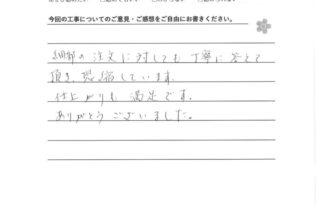 今回の工事についてのご意見・ご感想をご自由にお書きください。
細部の注文に対しても丁寧に答えて
頂き、恐縮しています。
仕上がりも満足です。
ありがとうございました。